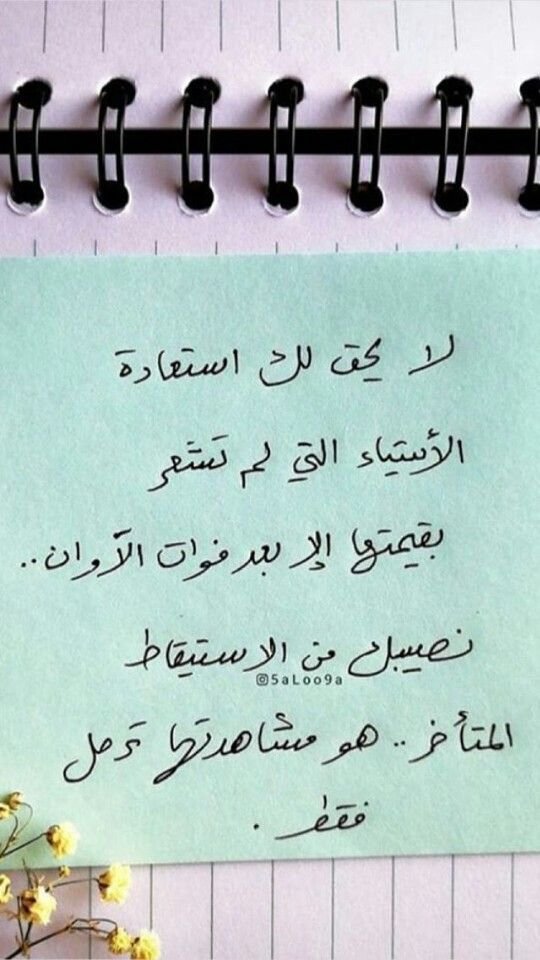 لا يحق لك استعادة
الأشياء التي لم تشعر
بقيمتها إلا بعد فوات الأوان..
نصيبك من الاستيقاظ
@5aLoo9a
المتأخر.. هو مشاهدتها ترحل
فقط .